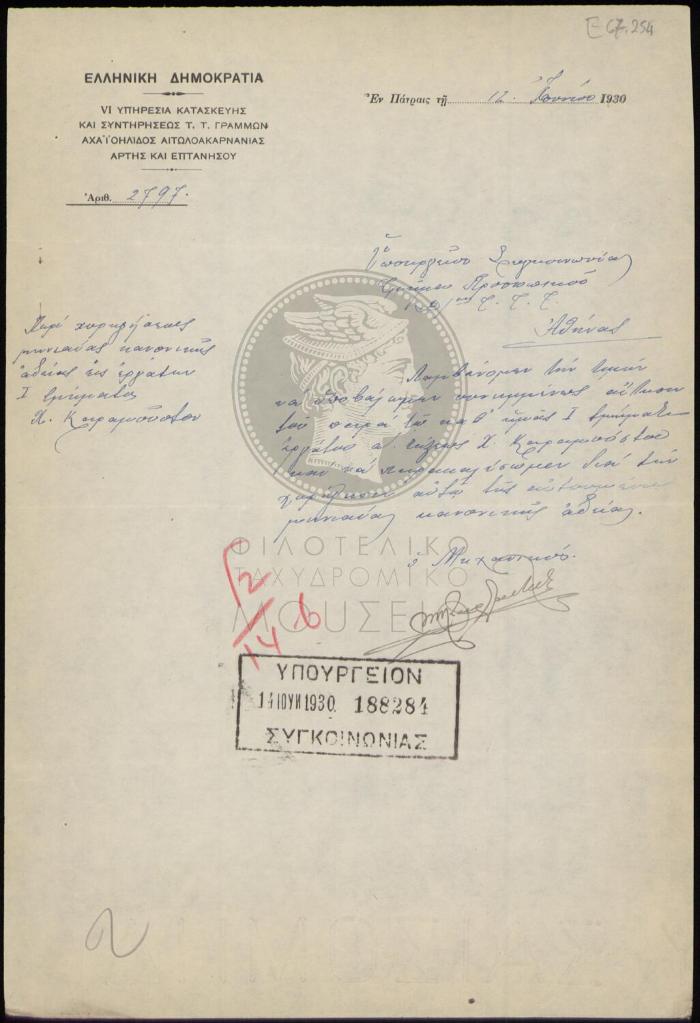 Ε 67.254
ΕΛΛΗΝΙΚΗ ΔΗΜΟΚΡΑΤΙΑ
VI ΥΠΗΡΕΣΙΑ ΚΑΤΑΣΚΕΥΗΣ
ΚΑΙ ΣΥΝΤΗΡΗΣΕΩΣ Τ. Τ. ΓΡΑΜΜΩΝ
ΑΧΑΪΟΗΛΙΔΟΣ ΑΙΤΩΛΟΑΚΑΡΝΑΝΙΑΣ
ΑΡΤΗΣ ΚΑΙ ΕΠΤΑΝΗΣΟΥ
Ἀριθ. 2797.
Ἐν Πάτραις τῇ 12. Ἰουνίου 1930
Ὑπουργεῖον Συγκοινωνίας
Τμῆμα Προσωπικοῦ
Τ. Τ. Τ.
Ἀθήνας
Περὶ χορηγήσεως
μηνιαίας κανονικῆς
ἀδείας εἰς ἐργάτην
Ι τμήματος
Χ.
Λαμβάνομεν τὴν τιμὴν
νὰ ὑποβάλωμεν συνημμένως αἴτησιν
τοῦ παρὰ τῷ καθ' ἡμᾶς Ι τμήματι
ἐργάτου α τάξεως Χ.
καὶ νὰ παρακαλέσωμεν διὰ τὴν
χορήγησιν αὐτῷ τῆς αἰτουμένης
μηνιαίας κανονικῆς ἀδείας.
ὁ Μηχανικός.
ΦΙΛΟΤΕΛΙΚΟ
ΤΑΧΥΔΡΟΜΙΚΟ
ΜΟΥΣΕΙΟ
2
14 6
ΥΠΟΥΡΓΕΙΟΝ
14 ΙΟΥΝ 1930. 188284
ΣΥΓΚΟΙΝΩΝΙΑΣ
2